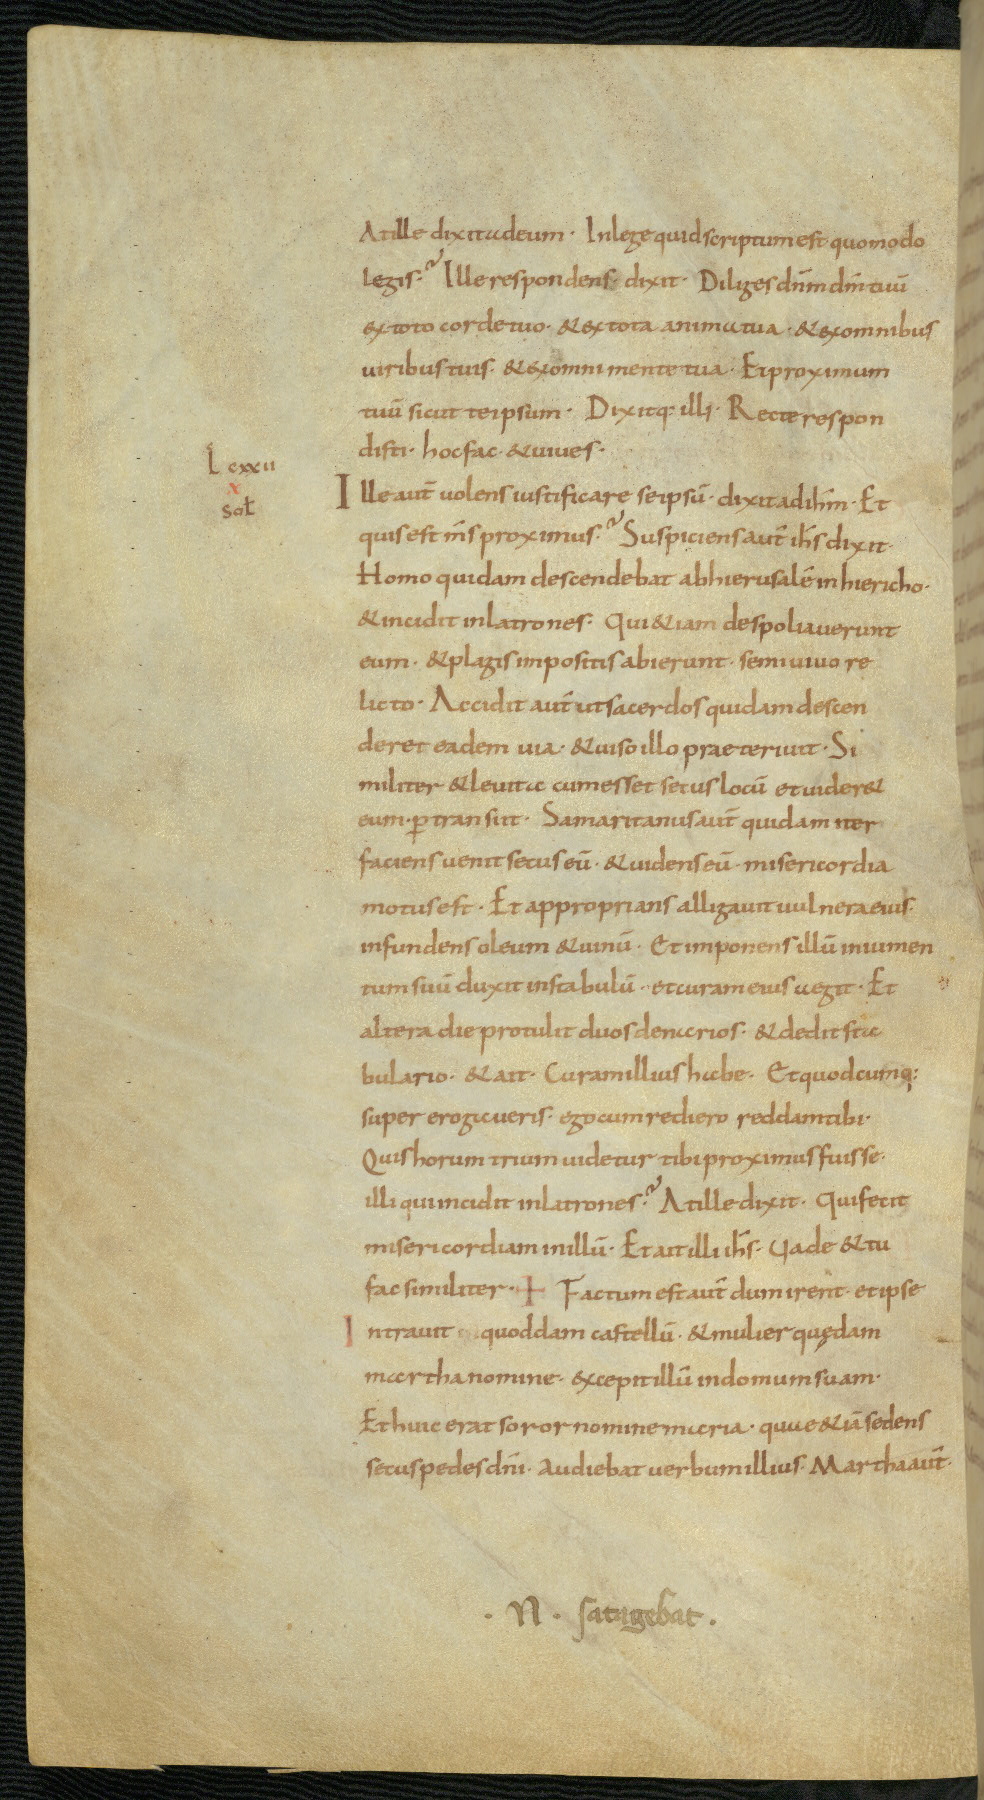 At ille dixit ad eum· In lege quid scriptum est quomodo
legis·? Ille respondens· dixit· Diliges dñm dm̄ tuū
ex toto corde tuo· & ex tota anima tua· & ex omnibus
uiribus tuis· & ex omni mente tua· Et proximum
tuū sicut te ipsum· Dixitq· illi· Recte respon
disti· hoc fac· & uiues·
L cxxii
x
Sol̄
Ille aut̄ uolens iustificare se ipsū· dixit ad ih̄m· Et
quis est m̄s proximus·? Suspiciens aut̄ ih̄s dixit·
Homo quidam descendebat ab hierusalē in hiericho·
& incidit in latrones· Qui &iam despoliauerunt
eum· & plagis impositis abierunt· semiuiuo re
licto· Accidit aut̄ ut sacerdos quidam descen
deret eadem uia· & uiso illo praeteriuit· Si
militer & leuita cum esset secus locū et uider&
eum· p̄transiit· Samaritanus aut̄ quidam iter
faciens uenit secus eū· & uidens eū· misericordia
motus est· Et approprians alligauit uulnera eius·
infundens oleum & uinū· Et imponens illū in iumen
tum suū duxit in stabulū· et curam eius aegit· Et
altera die protulit duos denarios· & dedit sta
bulario· & ait· Curam illius habe· Et quodcumq:
super erogaueris· ego cum rediero reddam tibi·
Quis horum trium uidetur tibi proximus fuisse·
illi qui incidit in latrones·? At ille dixit· Qui fecit
misericordiam in illū· Et ait illi ih̄s· Uade & tu
fac similiter· + Factum est aut̄ dum irent· et ipse
Intrauit quoddam castellū· & mulier quędam
martha nomine· excepit illū in domum suam·
Et huic erat soror nomine maria· quae &iā sedens
secus pedes dn̄i· audiebat uerbum illius· Martha aut̄·
· N · satagebat ·